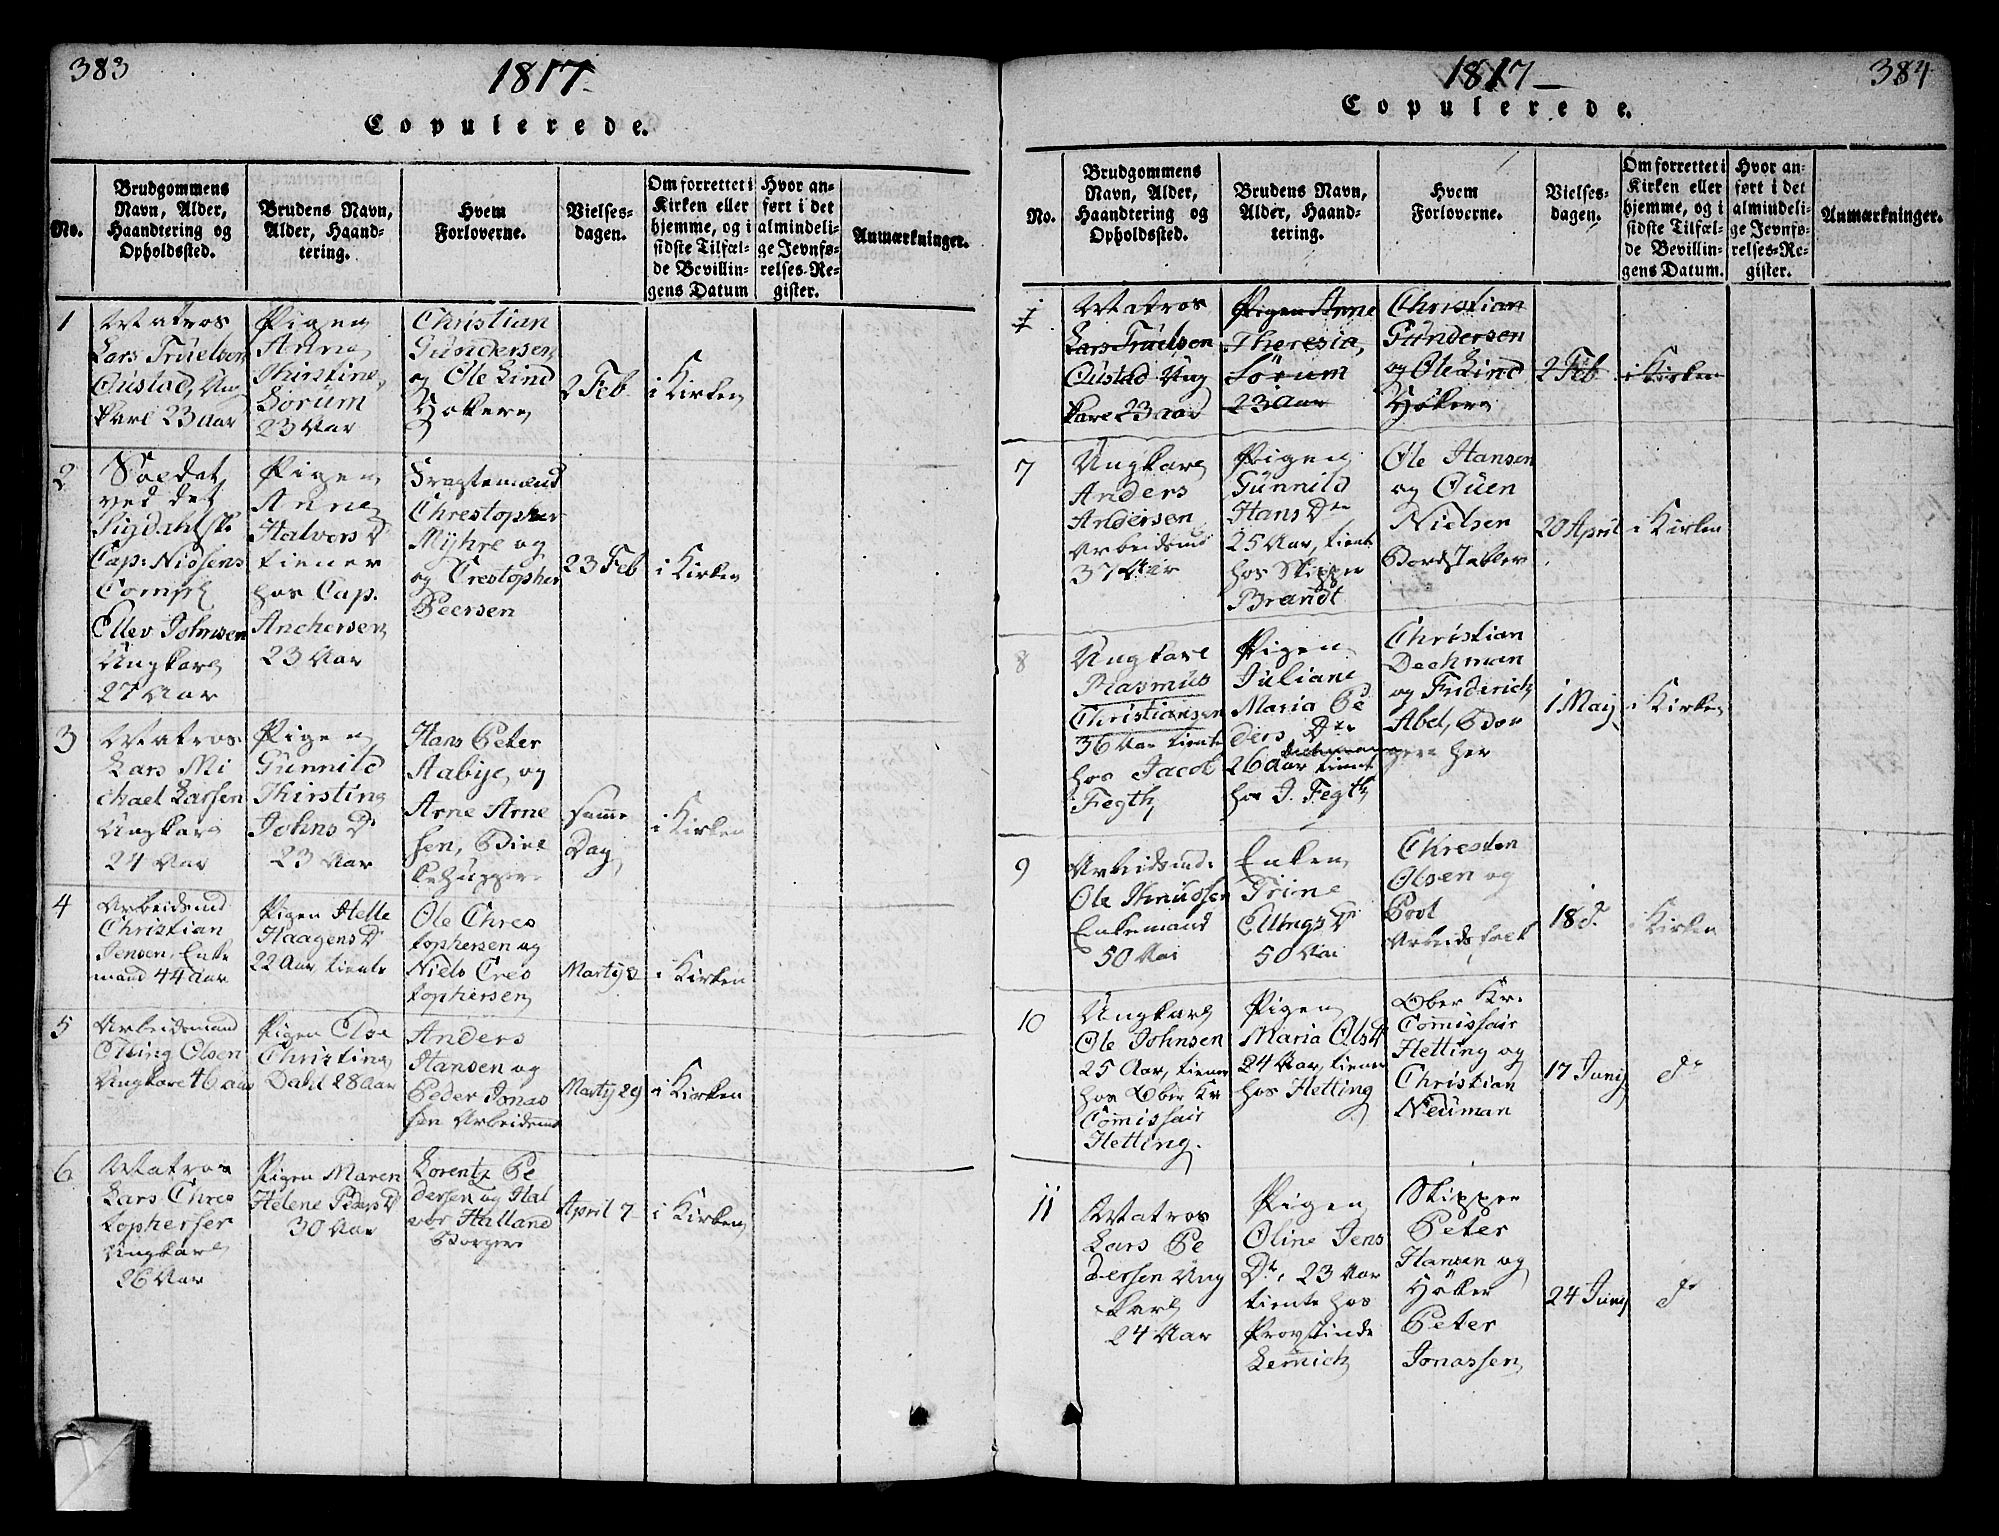 383
1817
Copulerede.
No.
Brudgommens
Navn, Alder,
Haandtering og
Opholdssted.
Brudens Navn,
Alder, Haand-
tering.
Hvem
Forloverne.
Vielses-
dagen.
Om forrettet i
Kirken eller
hjemme, og i
sidste Tilfæl-
de Bevillin-
gens Datum
Hvor an-
ført i det
almindeli-
ge Jevnfø-
relses-Re-
gister.
Anmærkninger.
1
Matros
Lars Truelsen
Ustad, Ung
karl 23 Aar
Pigen
Anne
Thirstine
Sorum
23 Aar
Christian
Gundersen
og Ole Lind
Høkere
2 Feb
i Kirken
2
Soldat
ved det
Sigdahlsk.
Cap: Nissens
Comp
Ellev Johnsen
Ungkarl
27 Aar
Pigen
Anne
Halvors D
tiener
hos Cap.
Anchersen
23 Aar
Fragtemænd
Chrestopher
Myhre og
og Crestopher
Peersen
23 Feb
i Kirken
3
Matros
Lars Mi
chael Larsen
Ungkarl
24 Aar
Pigen
Gunnild
Thirstine
Johns D
23 Aar
Hans Peter
Aabye, og
Arne Arne
sen, Bine
kehugger
samme
Dag
i Kirken
4
Arbeidsmd
Christian
Jensen, Enke
mand 44 Aar
Pigen Helle
Haagens D
22 Aar, tiente
Ole Chres
tophersen og
Niels Cres
tophersen
Martij 3
i Kirken
5
Arbeidsmand
Elling Olsen
Ungkarl 46 aar
Pigen Else
Christine
Dahl 28 Aar
Anders
Hansen og
Peder Jonas
sen Arbeidsmd
Martij 29
i Kirken
6
Matros
Lars Chres
topherser
Ungkarl
26 Aar
Pigen Maren
Helene Peders D
30 Aar
Lorentz Pe
dersen og Hal
vor Halland
Borgere
April 7
i Kirken
1817
384
Copulerede.
No.
Brudgommens
Navn, Alder,
Haandtering og
Opholdssted.
Brudens Navn,
Alder, Haand-
tering.
Hvem
Forloverne.
Vielses-
dagen.
Om forrettet i
Kirken eller
hjemme, og i
sidste Tilfæl-
de Bevillin-
gens Datum.
Hvor an-
ført i det
almindeli-
ge Jevnfø-
relses-Re-
gister.
Anmærkninger.
1
Matros
Lars Truelsen
Oustad Ung
karl 23 aar
Pigen Anne
Theresia,
Sørum
23 Aar
Christian
Gundersen
og Ole Lind
Høkere
2 Feb
i Kirken
7
Ungkarl
Anders
Andersen
Arbeidsmd
37 Aar
Pigen
Gunnild
Hans Dtr
25 Aar, tiente
hos Skipper
Brandt
Ole Hansen
og Ouen
Nielsen
Bordstabler
20 April
i Kirken
8
Ungkarl
Rasmus
Christiansen
36 Aar tiente
hos Jacob
Fegth
Pigen
Juliane
Maria Pe
ders Dtr
26 Aar tiente
hos J. Fegth
Christian
Dechman
og Friderich
Abel, Bor
gere her
1 May
i Kirken
9
Arbeidsmd.
Ole Knudsen
Enkemand
50 Aar
Enken
Trine
Ellings D
50 Aar
Chresten
Olsen og
Povl
Arbeidsfolk
18 d.
i Kirken
10
Ungkarl
Ole Johnsen
25 Aar, tiener
hos Ober Kr
Comissair
Hetting.
Pigen
Maria Ols D
24 Aar, tiener
hos Hetting
Ober Kr.
Comissair
Hetting og
Christian
Neuman
17 Junij
do
11
Matros
Lars Pe
dersen Ung
karl
24 Aar
Pigen
Oline Jens
Dtr, 23 Aar
tiente hos
Provstinde
Lemich
Skipper
Peter
Hansen og
Høker
Peter
Jonassen
24 Junij
do